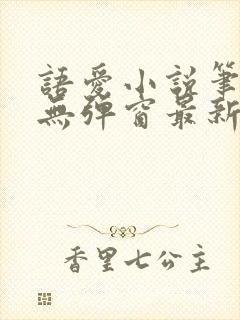 語愛小說筆
無彈窗最新
香里七公主